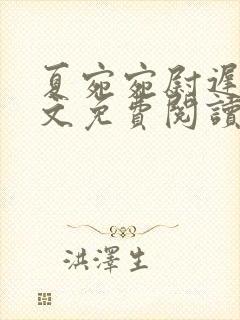 夏宛宛尉遲
文免費閱讀
洪澤生